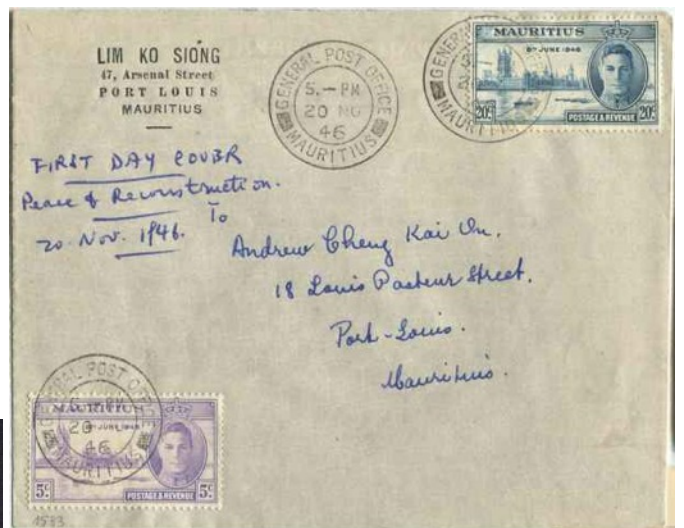 LIM KO SIONG
47, Arsenal Street
PORT LOUIS
MAURITIUS
GENERAL POST OFFICE
5.- PM
20 NO
46
MAURITIUS
MAURITIUS
8TH JUNE 1946
20c
20c
POSTAGE & REVENUE
FIRST DAY COVER
Peace & Reconstruction.
20. Nov. 1946.
To
Andrew Cheng Kai On.
18 Louis Pasteur Street.
Port-Louis.
Mauritius.
GENERAL POST OFFICE
PM
20
46
MAURITIUS
MAURITIUS
8TH JUNE 1946
5c
5c
POSTAGE & REVENUE
4583